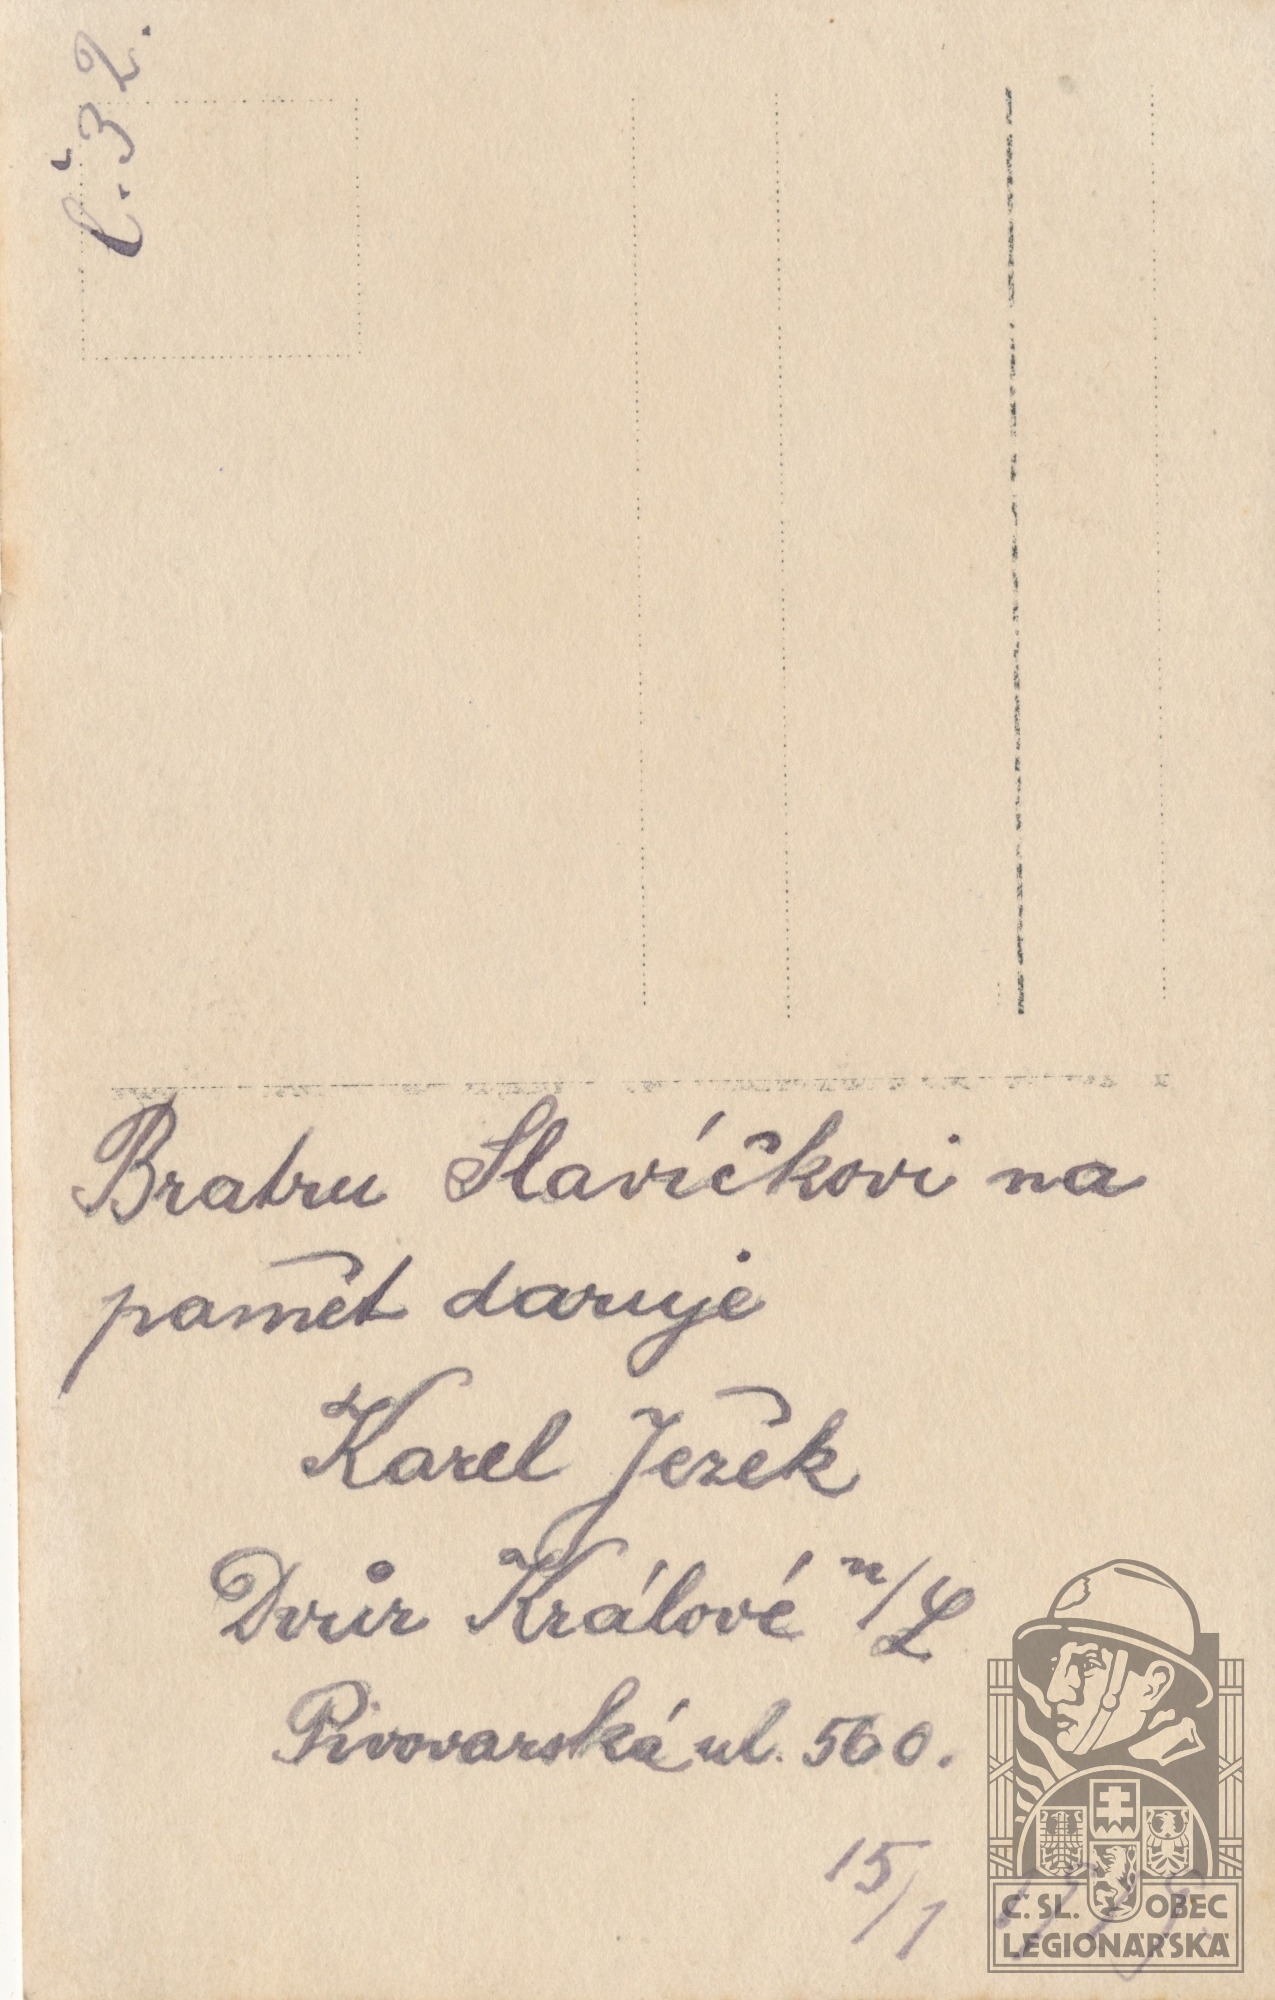 č. 32.
Bratru Slavíčkovi na
pamět daruje
Karel Ježek
Dvůr Králové n/L
Pivovarská ul. 560.
15/1
Č. SL. OBEC
LEGIONÁŘSKÁ